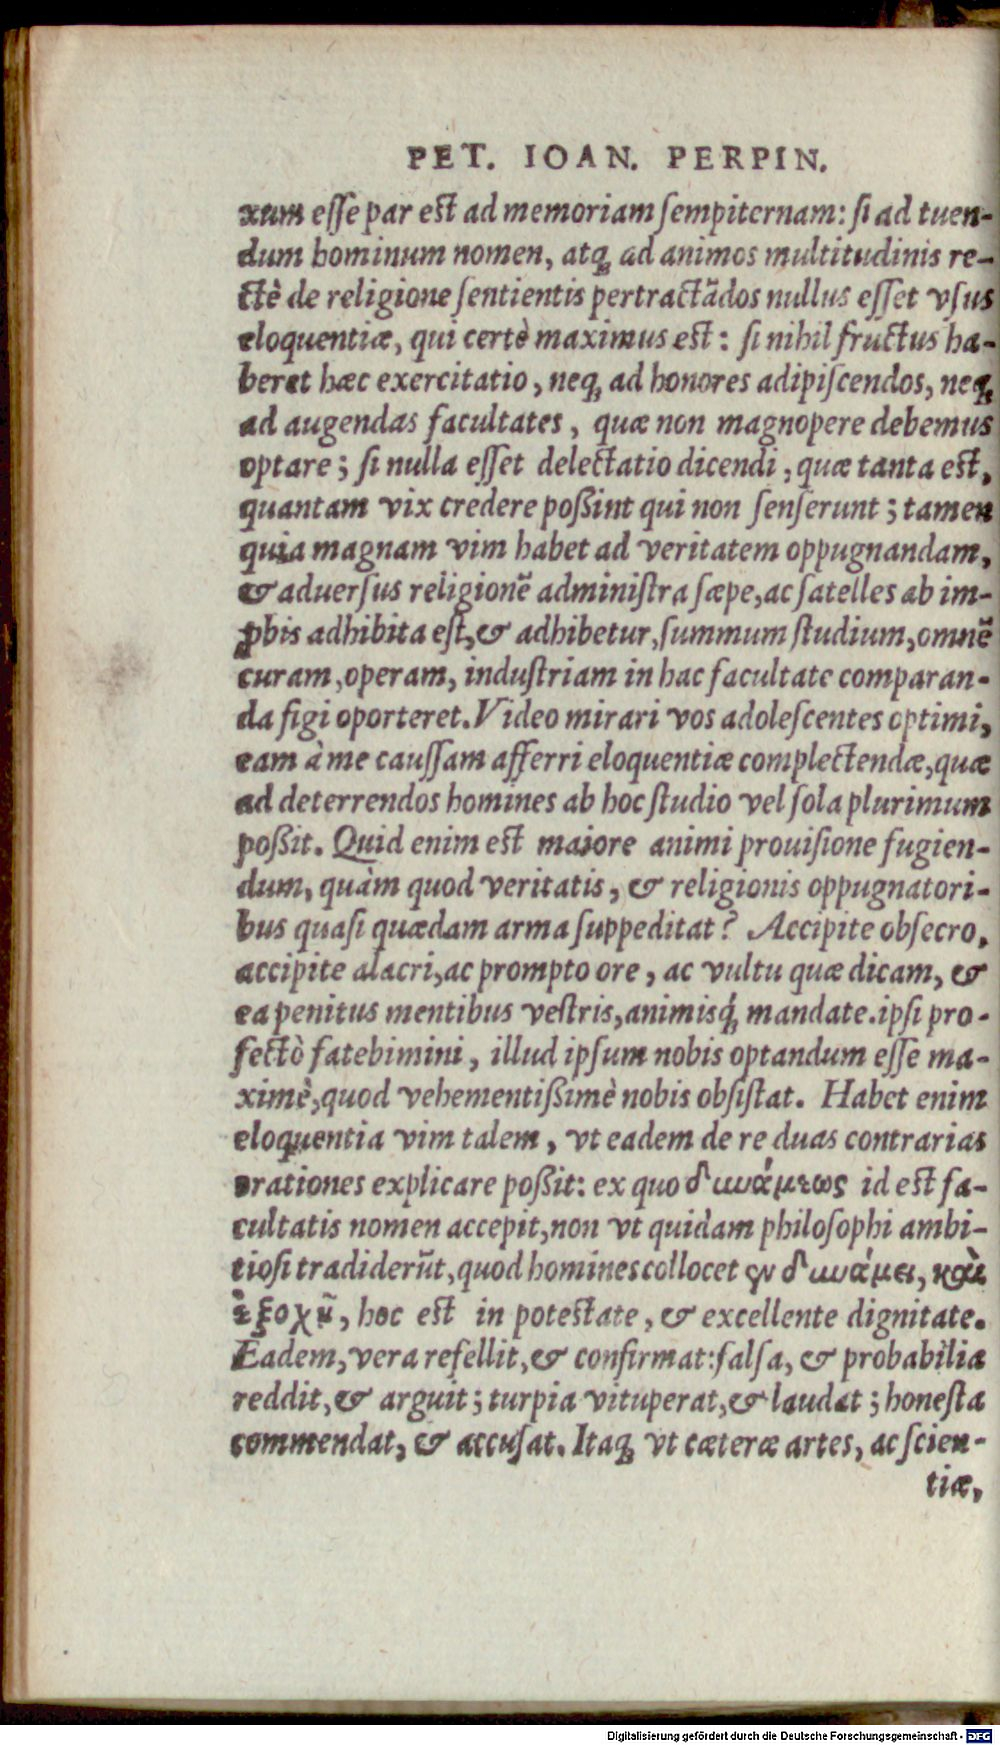 PET. IOAN. PERPIN.
xum eſſe par est ad memoriam ſempiternam: ſi ad tuen-
dum hominum nomen, atq; ad animos multitudinis re-
ctè de religione ſentientis pertractādos nullus eſſet vſus
eloquentiæ, qui certè maximus est: ſi nihil fructus ha-
beret hæc exercitatio, neq; ad honores adipiſcendos, neq;
ad augendas facultates, quæ non magnopere debemus
optare; ſi nulla eſſet delectatio dicendi, quæ tanta est,
quantam vix credere poßint qui non ſenſerunt; tamen
quia magnam vim habet ad veritatem oppugnandam,
& aduerſus religionē adminiſtra ſæpe, ac ſatelles ab im-
ꝓbis adhibita eſt, & adhibetur, ſummum ſtudium, omnē
curam, operam, induſtriam in hac facultate comparan-
da figi oporteret. Video mirari vos adoleſcentes optimi,
eam à me cauſſam afferri eloquentiæ complectendæ, quæ
ad deterrendos homines ab hoc ſtudio vel ſola plurimum
poßit. Quid enim est maiore animi prouiſione fugien-
dum, quàm quod veritatis, & religionis oppugnatori-
bus quaſi quædam arma ſuppeditat? Accipite obſecro,
accipite alacri, ac prompto ore, ac vultu quæ dicam, &
ea penitus mentibus vestris, animisq́; mandate. ipſi pro-
fectò fatebimini, illud ipſum nobis optandum eſſe ma-
ximè, quod vehementißimè nobis obſiſtat. Habet enim
eloquentia vim talem, vt eadem de re duas contrarias
orationes explicare poßit: ex quo δυνάμεως id est fa-
cultatis nomen accepit, non vt quidam philoſophi ambi-
tioſi tradiderūt, quod homines collocet ἐν δυνάμει, καὶ
ἐξοχῇ, hoc est in potestate, & excellente dignitate.
Eadem, vera refellit, & confirmat: falſa, & probabilia
reddit, & arguit; turpia vituperat, & laudat; honeſta
commendat, & accuſat. Itaq; vt cæteræ artes, ac ſcien-
tiæ,
Digitalisierung gefördert durch die Deutsche Forschungsgemeinschaft - DFG